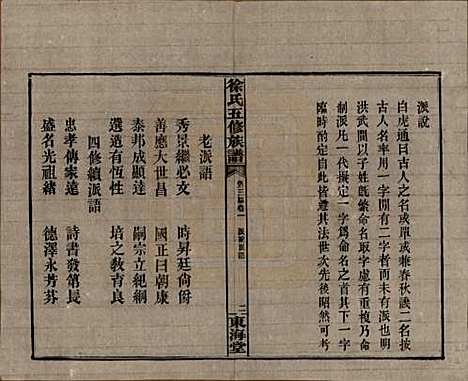 派說
白虎通曰古人之名或單或兼春秋譏二名按
古人名率用一字間有二字者亦未有派也明
洪武間以子姓既繁命名取字慮有重複乃命
制派凡一代擬定一字爲命名之式今將老派
臨時酌定二字依此而世次先後不
可考
徐氏五修族譜
卷一
派說派語
二
東海堂
老派語
秀景繼必文　時昇廷尚俯
善應大世昌　國正曰朝康
泰邦成顯達　嗣宗立紀綱
選造有恆性　培之教育良
四修續派語
忠孝傳家遠　詩書發第長
盛名光祖緒　德澤永芳芬